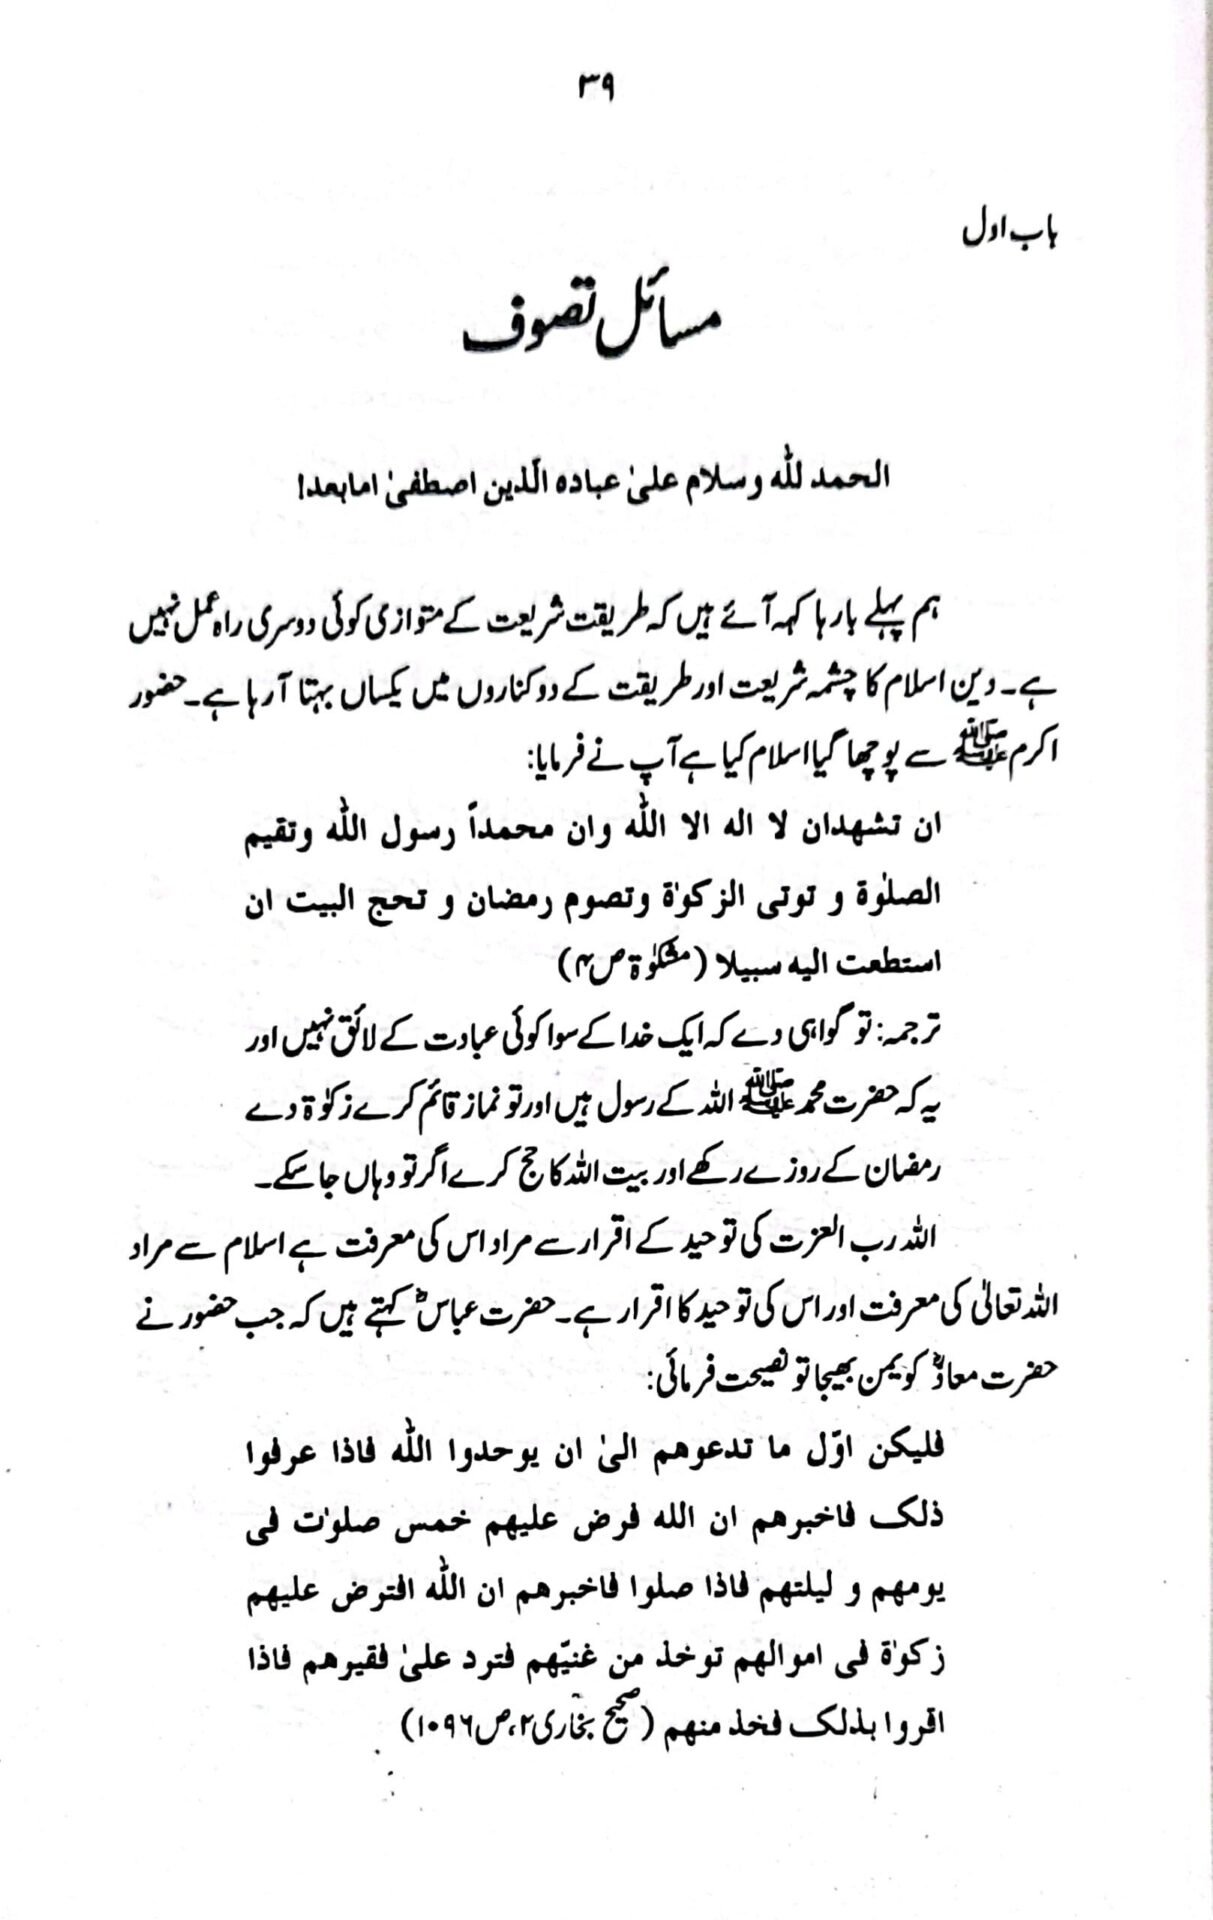 ۳۹
باب اول
مسائل تصوف
الحمد لله وسلام علیٰ عباده الّذین اصطفیٰ امابعد!
ہم پہلے بارہا کہہ آئے ہیں کہ طریقت شریعت کے متوازی کوئی دوسری راہ عمل نہیں
ہے۔ دین اسلام کا چشمہ شریعت اور طریقت کے دو کناروں میں یکساں بہتا آ رہا ہے۔ حضور
اکرم ﷺ سے پوچھا گیا اسلام کیا ہے آپ نے فرمایا:
ان تشهدان لا اله الا الله وان محمداً رسول الله وتقیم
الصلوٰة و توتی الزکوٰة وتصوم رمضان و تحج البیت ان
استطعت الیه سبیلا (مشکوٰۃ ص۴)
ترجمہ: تو گواہی دے کہ ایک خدا کے سوا کوئی عبادت کے لائق نہیں اور
یہ کہ حضرت محمد ﷺ اللہ کے رسول ہیں اور تو نماز قائم کرے زکوٰۃ دے
رمضان کے روزے رکھے اور بیت اللہ کا حج کرے اگر تو وہاں جا سکے۔
اللہ رب العزت کی توحید کے اقرار سے مراد اس کی معرفت ہے اسلام سے مراد
اللہ تعالیٰ کی معرفت اور اس کی توحید کا اقرار ہے۔ حضرت عباسؓ کہتے ہیں کہ جب حضور نے
حضرت معاذؓ کو یمن بھیجا تو نصیحت فرمائی:
فلیکن اوّل ما تدعوهم الیٰ ان یوحدوا الله فاذا عرفوا
ذلک فاخبرهم ان الله فرض علیهم خمس صلوٰت فی
یومهم و لیلتهم فاذا صلوا فاخبرهم ان الله افترض علیهم
زکوٰة فی اموالهم توخذ من غنیّهم فترد علیٰ فقیرهم فاذا
اقروا بذلک فخذ منهم (صحیح بخاری ۲، ص۱۰۹۶)